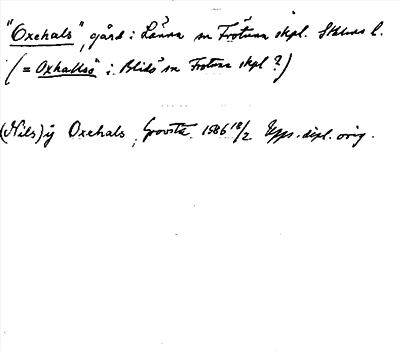 "Oxehals", gård i Länna sn Frötuna skpl. Sthlms l.
(= Oxhalsö i Blidö sn Frötuna skpl ?)
(Nils) ij Oxehals, Grovsta 1586 18/2 Upps. dipl. orig.